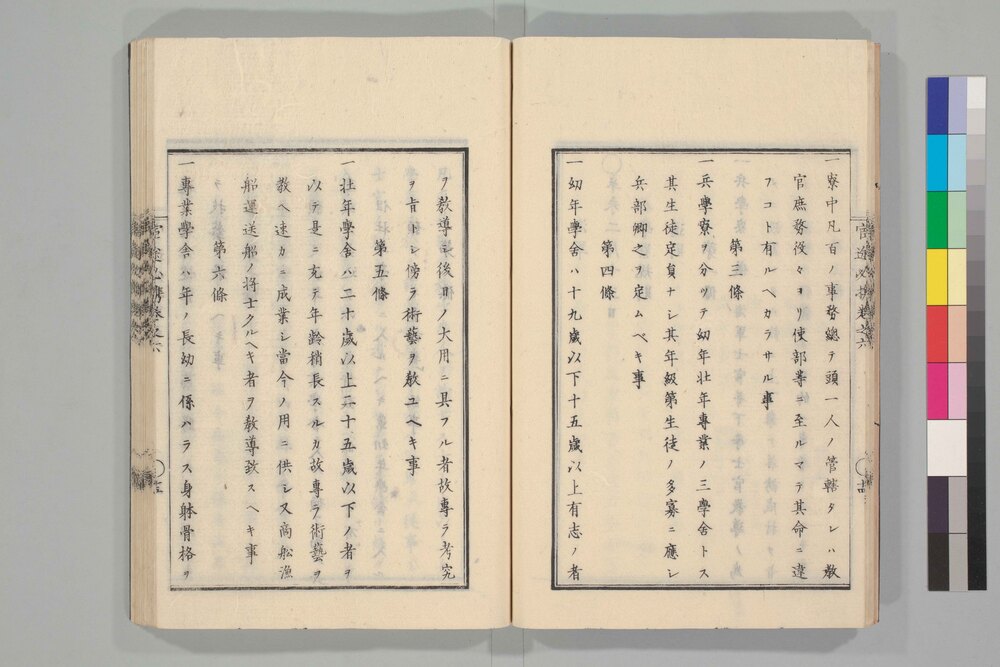 一寮中凡百ノ事務總テ頭一人ノ管轄タレハ教
官庶務役々ヨリ使部等ニ至ルマテ其命ニ違
フコト有ルヘカラサル事
第三條
一兵學寮ヲ分ツテ幼年壮年專業ノ三學舎トス
其生徒定員ナシ其年級第生徒ノ多寡ニ應シ
兵部卿之ヲ定ムベキ事
第四條
一幼年學舎ハ十九歳以下十五歳以上有志ノ者
ヲ教導シ後日ノ大用ニ具フル者故專ラ考究
ヲ旨トシ傍ラ術藝ヲ教ユヘキ事
第五條
一壮年學舎ハ二十歳以上二十五歳以下ノ者ヲ
以テ是ニ充テ年齢稍長スルカ故專ラ術藝ヲ
教ヘ速カニ成業シ當今ノ用ニ供シ又商船漁
船運送船ノ将士タルヘキ者ヲ教導致スヘキ事
第六條
一專業學舎ハ年ノ長幼ニ係ハラス身體骨格ヲ